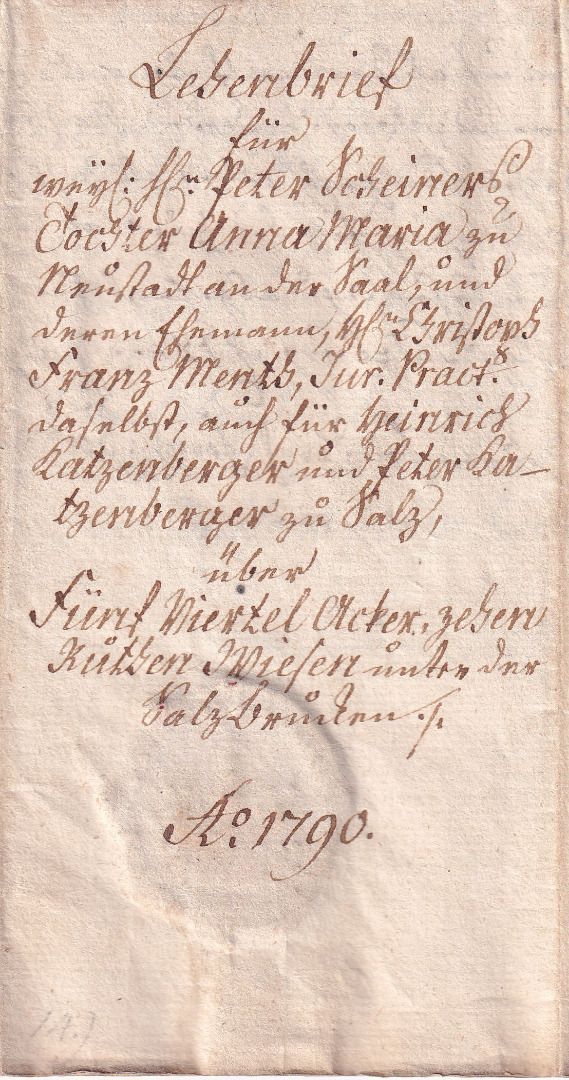 Lehenbrief
für
weyl: H:n Peter Scheiners
Tochter Anna Maria zu
Neustadt an der Saal, und
deren Ehemann, H:n Christoph
Franz Menth, Jur. Pract:
daselbst, auch für Heinrich
Katzenberger und Peter Ka-
tzenberger zu Salz,
über
Fünf Viertel Acker, zehen
Ruthen Wiesen unter der
Salzbrucken ./.
Ao: 1790.